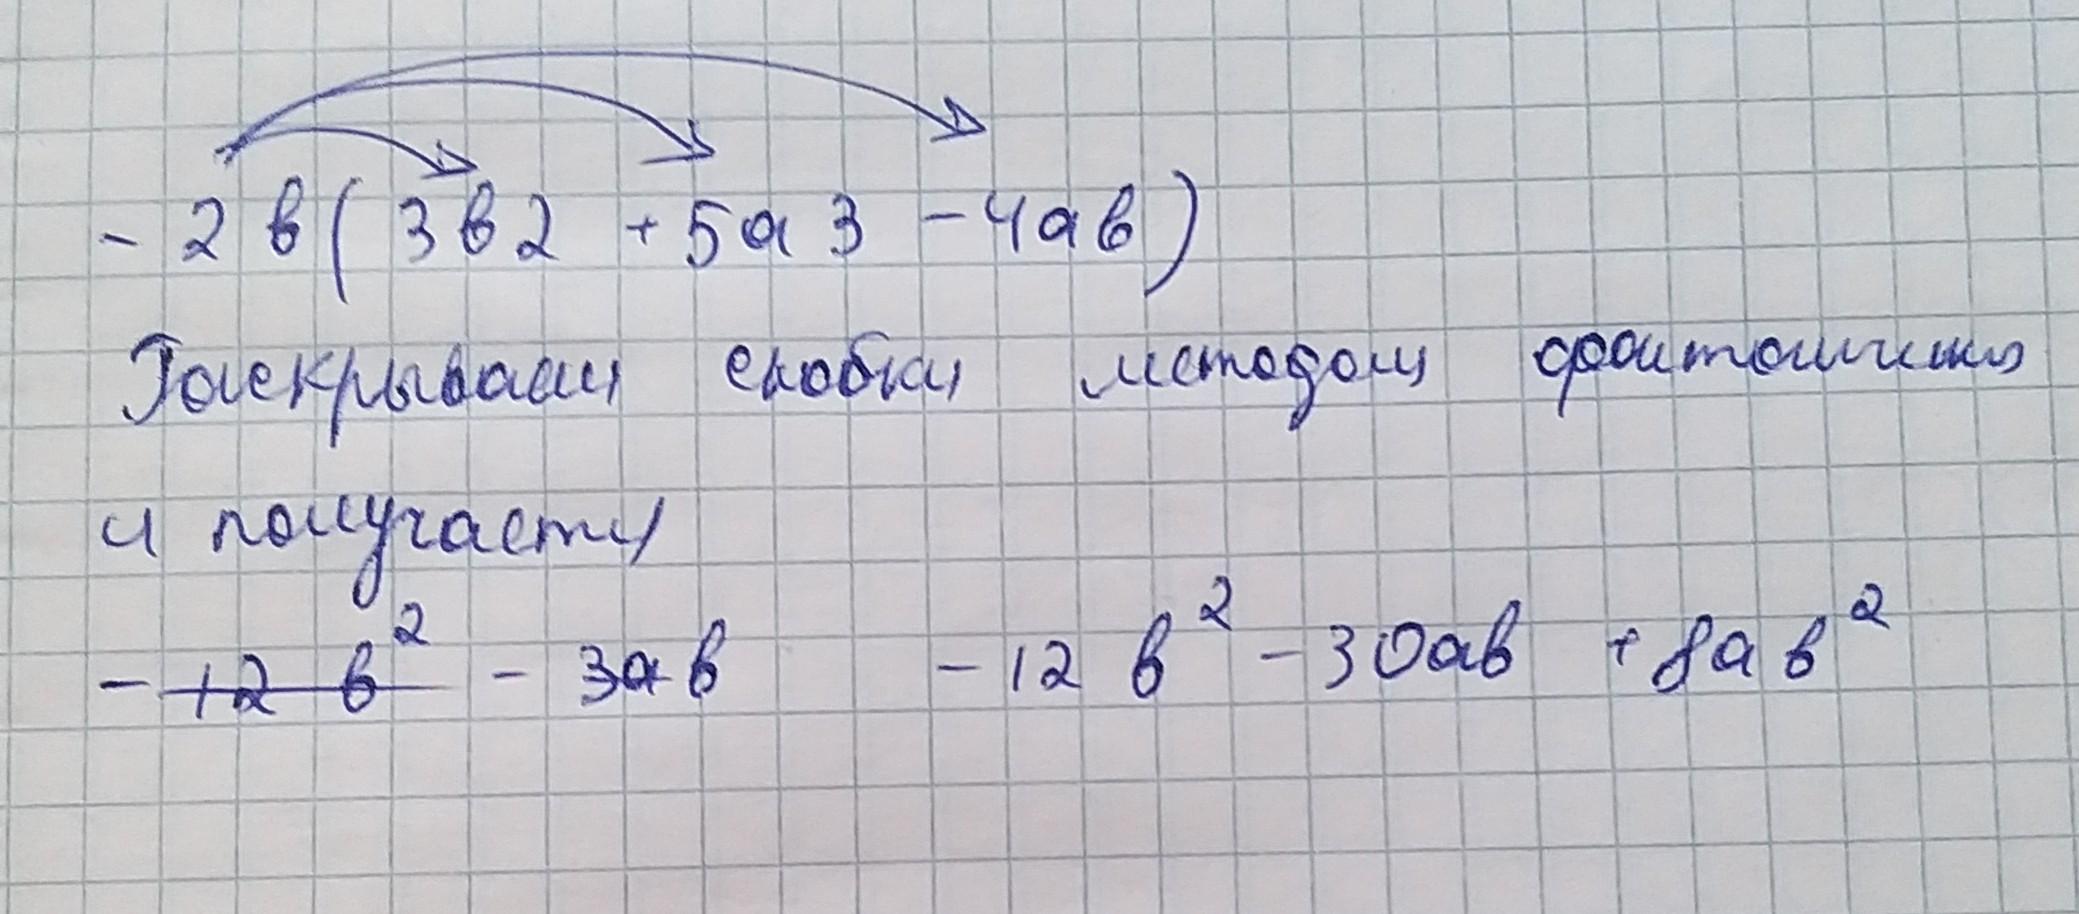 - 2 в ( 3 в 2 + 5 а 3 - 4 а в )
Раскрываем скобки методом фонтанчика
и получаем
- 12 в² - 3ав - 12 в² - 30ав + 8а в²